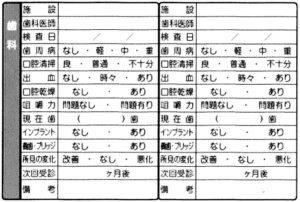 歯科
施設
歯科医師
検査日 / /
歯周病 なし・軽・中・重
口腔清掃 良・普通・不十分
出血 なし・時々・あり
口腔乾燥 なし・あり
咀嚼力 問題なし・問題有り
現在歯 ( )歯
インプラント なし・あり
義歯・ブリッジ なし・あり
所見の変化 改善・なし・悪化
次回受診 ヶ月後
備考
施設
歯科医師
検査日 / /
歯周病 なし・軽・中・重
口腔清掃 良・普通・不十分
出血 なし・時々・あり
口腔乾燥 なし・あり
咀嚼力 問題なし・問題有り
現在歯 ( )歯
インプラント なし・あり
義歯・ブリッジ なし・あり
所見の変化 改善・なし・悪化
次回受診 ヶ月後
備考